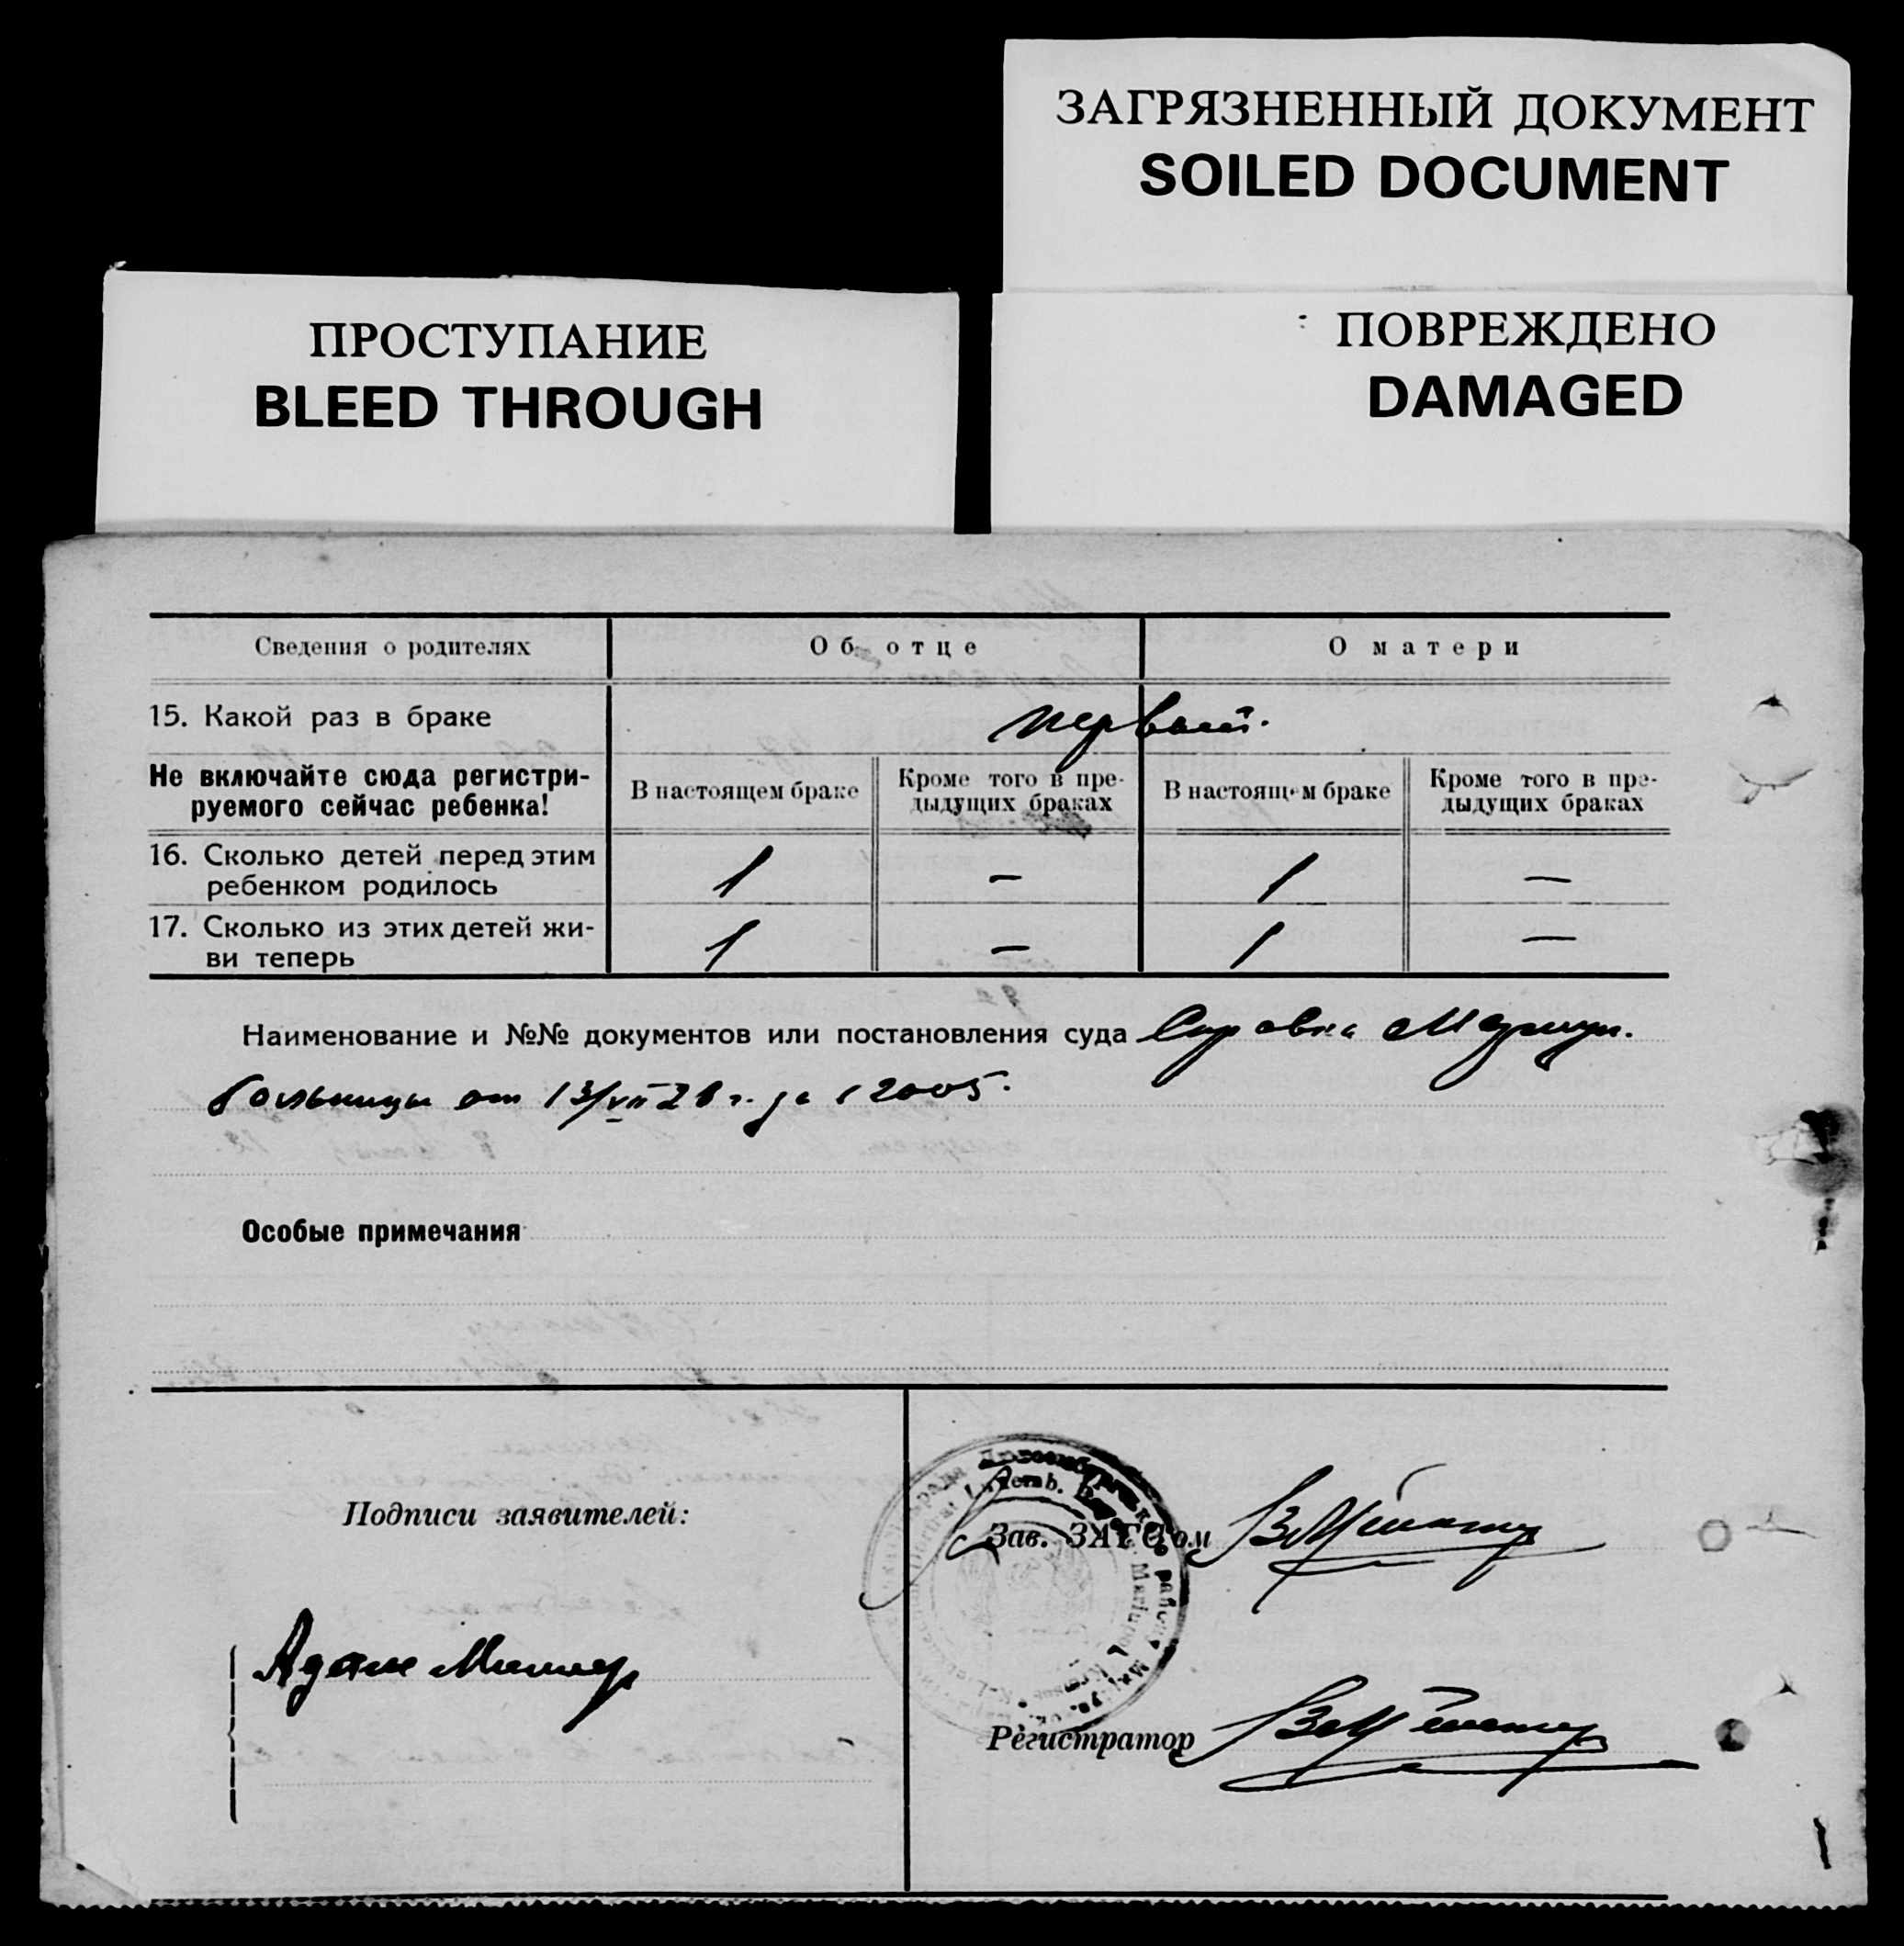 ЗАГРЯЗНЕННЫЙ ДОКУМЕНТ
SOILED DOCUMENT
ПРОСТУПАНИЕ
BLEED THROUGH
ПОВРЕЖДЕНО
DAMAGED
Сведения о родителях Об отце О матери
15. Какой раз в браке первый.
Не включайте сюда регистри-
руемого сейчас ребенка!
В настоящем браке
Кроме того в пре-
дыдущих браках
В настоящем браке
Кроме того в пре-
дыдущих браках
16. Сколько детей перед этим
ребенком родилось 1 – 1 –
17. Сколько из этих детей жи-
ви теперь 1 – 1 –
Наименование и №№ документов или постановления суда Справка
больницы от 13/VII 28 г. за 12005.
Особые примечания
Подписи заявителей:
Зав. ЗАГС'ом
Адам Миллер
Регистратор